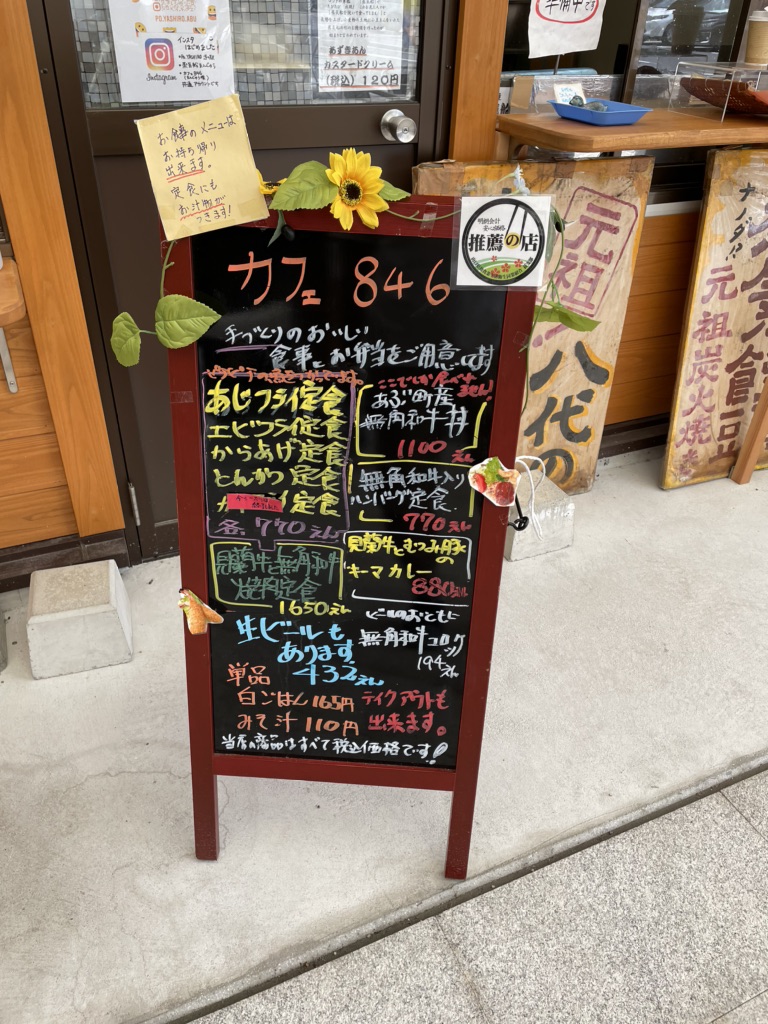 Instagram
インスタ
はじめました!
あずきあん
カスタードクリーム
(税込)120円
準備中です
お食事のメニューは
お持ち帰り
出来ます。
定食にも
お汁物が
つきます!
推薦の店
カフェ 846
手づくりのおいしい
食事とお弁当をご用意
あじフライ定食
エビフライ定食
からあげ定食
とんかつ定食
各、770えん
ここでしか食べれません!
あぶ町産
無角和牛丼
1100えん
無角和牛入り
ハンバーグ定食
770えん
見蘭牛と無角和牛
焼肉定食
1650えん
見蘭牛とむつみ豚
の
キーマカレー
880えん
生ビールも
あります
432えん
ビールのおともに
無角和牛コロッケ
194えん
単品
白ごはん 165円
みそ汁 110円
テイクアウトも
出来ます。
当店の商品はすべて税込価格です!
元祖
八代の
ナノダ!!
元祖炭火焼き